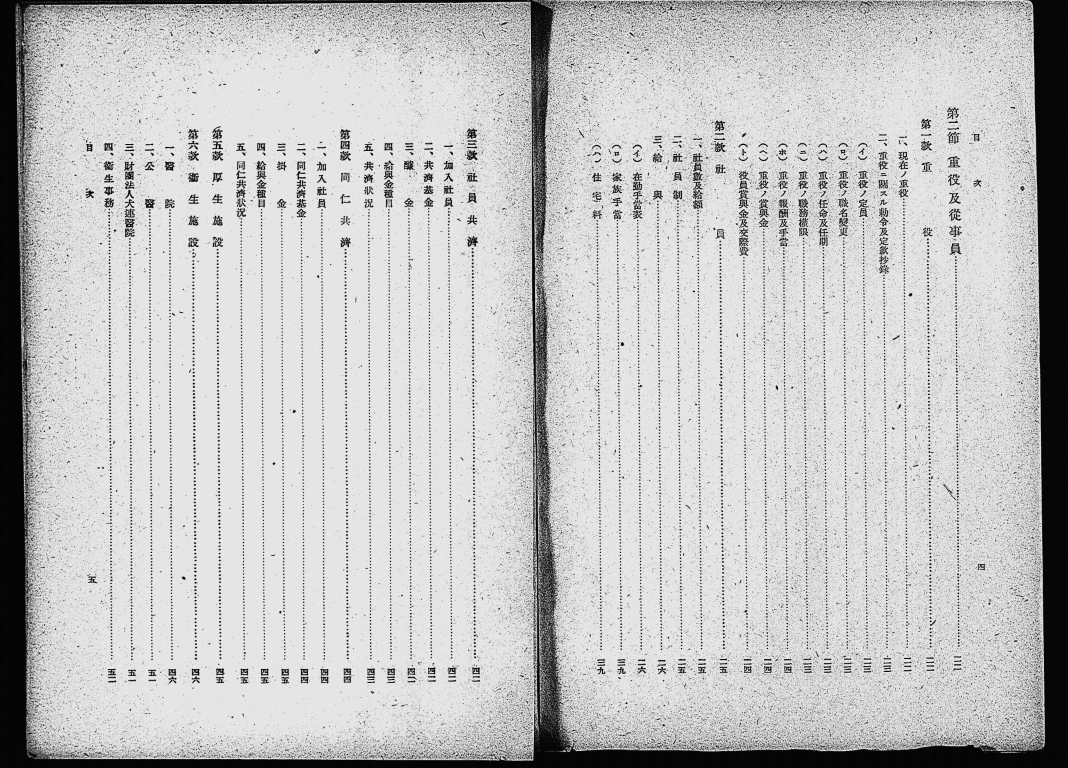 目次
四
第二節 重役及從事員…二二
第一款 重役…二二
一、現在ノ重役…二二
二、重役ニ關スル勅令及定款抄錄…二三
(イ) 重役ノ定員…二三
(ロ) 重役ノ職名變更…二三
(ハ) 重役ノ任命及任期…二三
(ニ) 重役ノ職務權限…二三
(ホ) 重役ノ報酬及手當…二四
(ヘ) 重役ノ賞與金…二四
(ト) 役員賞與金及交際費…二四
第二款 社員…二五
一、社員數及給額…二五
二、社員制…二五
三、給與…二六
(イ) 在勤手當表…二六
(ロ) 家族手當…三九
(ハ) 住宅料…三九
第三款 社員共濟…四二
一、加入社員…四二
二、共濟基金…四二
三、醵金…四二
四、給與金種目…四三
五、共濟狀況…四三
第四款 同仁共濟…四四
一、加入社員…四四
二、同仁共濟基金…四四
三、掛金…四五
四、給與金種目…四五
五、同仁共濟狀況…四五
第五款 厚生施設…四五
第六款 衞生施設…四六
一、醫院…四六
二、公醫…五一
三、財團法人大連醫院…五一
四、衞生事務…五二
目次
五